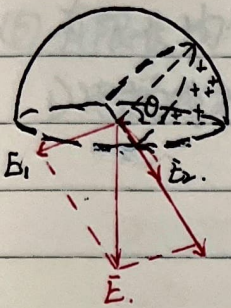 θ
E₁
E₂.
E.